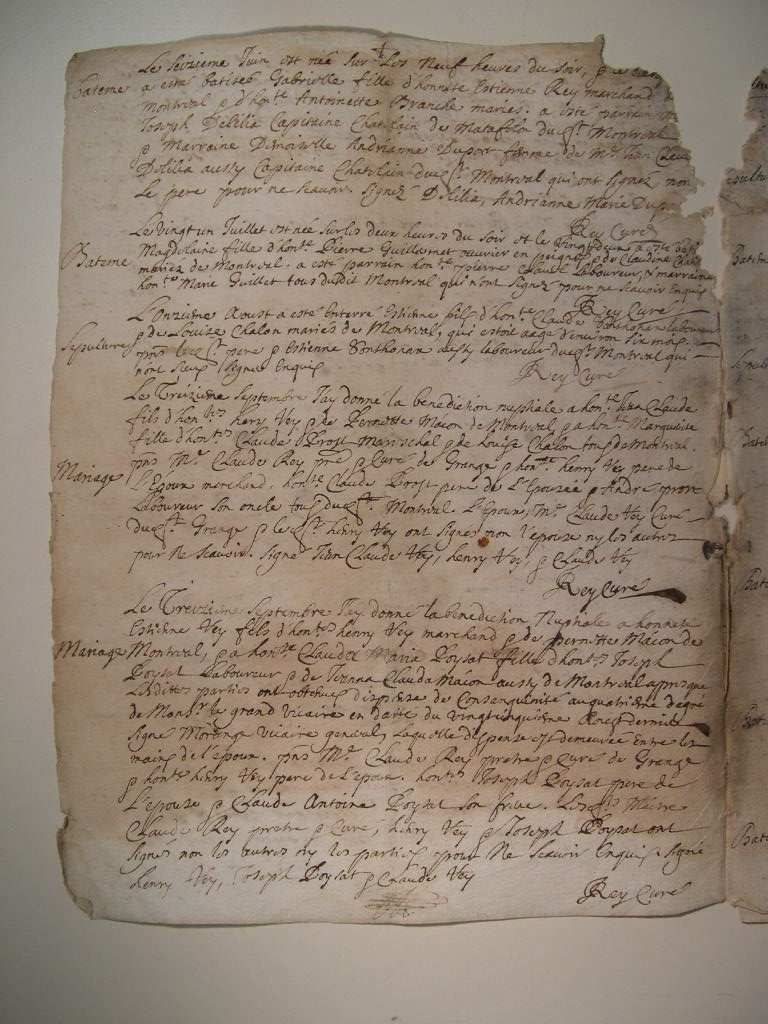 Bateme
Le seizieme Juin est née sur Les Neuf heures du soir,
a esté batisée Gabrielle fille d'honnete Estienne Rey marchand
Montreal & d'hon.te Antoinette Branche mariés. a esté parrain
Joseph Delilia Capitaine Chatelain de Matafelon dud.st Montreal
& Marraine Damoiselle Andrianne Duport femme de M.re
Delilia aussy Capitaine Chatelain dud.st Montreal qui ont signez non
Le pere pour ne scavoir. signez Delilia, Andrianne Marie
Rey Curé
Bateme
Le vingt un Juillet est née sur les deux heures du soir et le vingt deux a esté
Magdelaine fille d'hon.te Pierre Guillermet ouvrier en peignes & de Claudine
mariez de Montreal. a esté parrain hon.te pierre Laboureur, & marraine
hon.te Marie Guillet tous dudit Montreal qui n'ont signez pour ne scavoir Enquis
Rey Curé
Sepulture
L'onzieme Aoust a esté Enterré Estienne fils d'hon.te Claude laboureur
& de Louize Chalon mariés de Montreal, qui estoit agé d'environ six mois.
pns led.st pere & Estienne aussy laboureur dud.st Montreal qui
n'ont sceus signer Enquis
Rey Curé
Mariage
Le Treizieme Septembre J'ay donné la benediction nuptiale a hon.te Jean Claude
fils d'hon.tes henry Vey & de Pernette Macon de Montreal, & a hon.te Marguerite
fille d'hon.tes Claude Prost Mareschal & de Louise Chalon tous de Montreal.
pns M.re Claude Rey pre & Curé de Grange & hon.te henry Vey pere de
L'Epoux marchand. hon.te Claude Prost pere de L'Epousée & André
Laboureur son oncle tous dud.st Montreal. L'epoux, M.re Claude Vey Curé
dud.st Grange & led.st henry Vey ont signés non l'epouse ny les autres
pour Ne Scavoir. signé Jean Claude Vey, henry Vey, & Claude Vey
Rey Curé
Mariage
Le Treizieme Septembre J'ay donné la benediction Nuptiale a honnete
Estienne Vey fils d'hon.tes henry Vey marchand & de pernette Macon de
Montreal, & a hon.te Claudea Maria Poysat fille d'hon.tes Joseph
Poysat Laboureur & de Jeanna Clauda Macon aussy de Montreal apres que
Lesdittes parties ont obtenus dispense de Consanguinité au quatrieme degré
de Mons.r le grand Vicaire en datte du vingt cinquieme Aoust dernier
signé Morange Vicaire general, laquelle dispense est demeurée Entre les
mains de l'epoux. pns M.re Claude Rey pretre & Curé de Grange
& hon.te henry Vey pere de l'epoux. hon.te Joseph Poysat pere de
L'epouse & Claude Antoine Poysat son frere. Lesd.st Maitre
Claude Rey pretre & Curé, henry Vey & Joseph Poysat ont
signés non les autres ny les parties pour Ne Scavoir Enquis. signé
henry Vey, Joseph Poysat & Claude Vey
Rey Curé